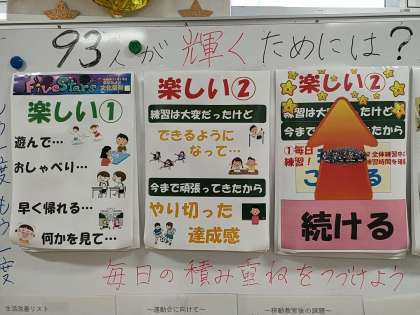 93人が輝くためには?
Five Stars
楽しい①
遊んで…
おしゃべり…
早く帰れる…
何かを見て…
楽しい②
練習は大変だったけど
できるように
なって…
今まで頑張ってきたから
やり切った
達成感
楽しい②
練習は大変だったけど
今まで
①毎日
練習!
続ける
毎日の積み重ねをつづけよう
もう一度
もう一度
生活改善リスト
~運動会に向けて~
~移動教室後の課題~